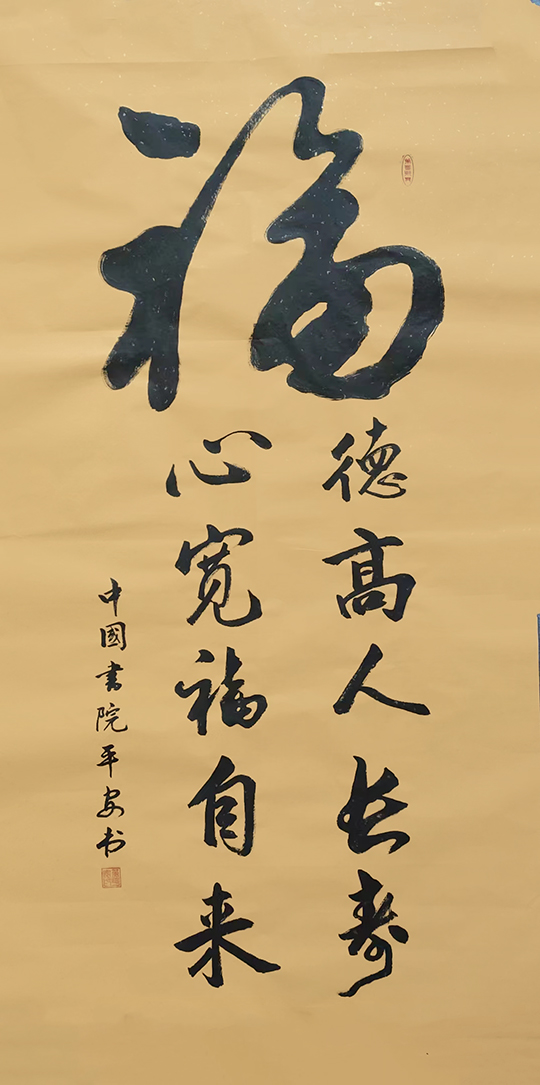 福
德高人长寿
心宽福自来
中國書院平安书